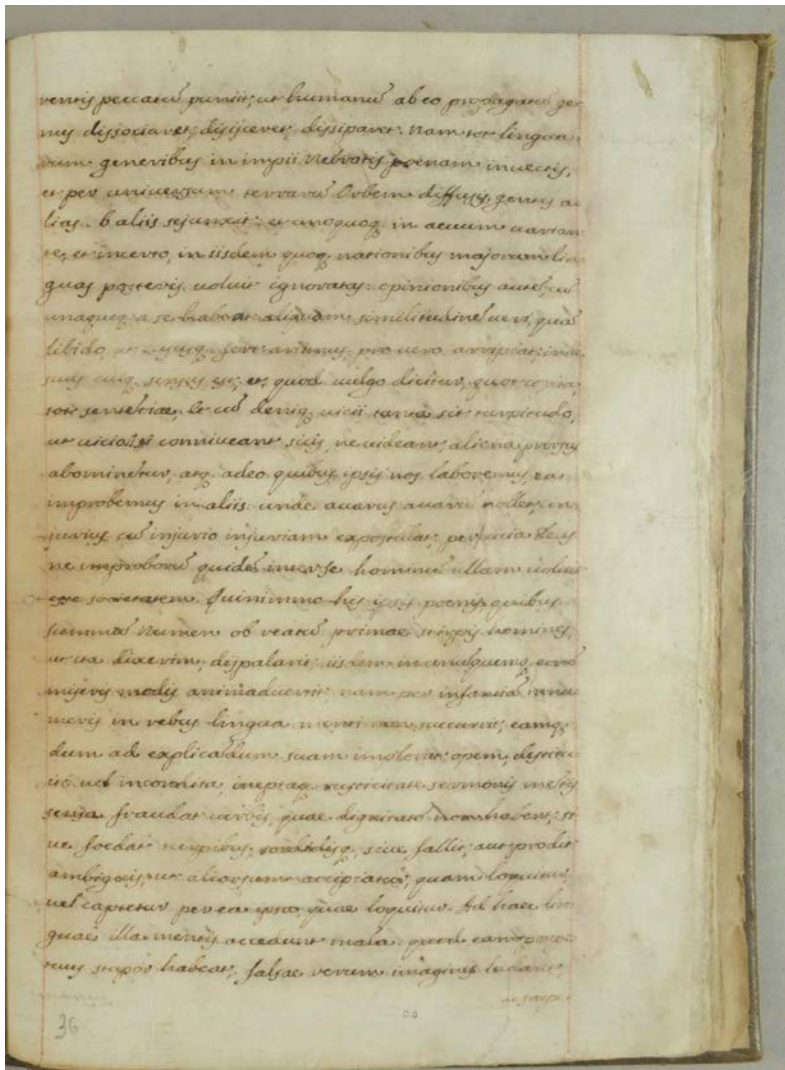 rentis peccatū puniit, ut humanū ab eo propagatū ge-
nus dissociaret, disijceret, dissiparet. Nam tot lingua-
rum generibus in impii Nebrotis poenam invectis,
et per universam terrarū Orbem diffusis, gentes a-
lias. b aliis sejunxit: et unoquoq. in aevum varian-
te, et incerto, in iisdem quoq. nationibus majorum lin-
guas posteris voluit ignoratas: opinionibus autē, cū
unaquaeq. a se habeat aliquam similitudinē veri, quā
libido fert animus pro vero arripiat: inde
suus cuiq. sensus est: et quod vulgo dicitur, quot capita,
tot sentētiae. Et cū deniq. vitii tanta sit turpitudo,
ut vitiosi conniveant suis, ne videant, aliena prorsus
abominētur, atq. adeo quibus ipsis nos laboremus, ea
improbemus in aliis: unde avarus avarū nollet, in-
jurius cū injurio injuriam expostulat: Deus
ne improborū quidē inter se hominū ullam voluit
esse societatem. Quinimmo his ipsis poenis, quibus
summū Numen ob reatū primae stirpis homines,
ut ita dixerim, dispalavit: iisdem in unūquemq. eorū
miseris modis animadvertit: nam per infantiā innu-
meris in rebus lingua menti non succurrit, eamq.
dum ad explicādum suam implorat opem, destitu-
it: vel incondita, ineptaq. rusticitate sermonis mentis
sensa fraudat verbis, quae dignitatē non habent, si-
ve foedat turpibus, sordidisq., sive fallit, aut prodit
ambiguis, ut aliorsum accipiatur, quam loquitur
vel captetur per ea ipsa, quae loquitur. Ad haec lin-
guae illa mentis accedunt mala quod eam
tuus stupor habeat, falsae rerum imagines ludant
36